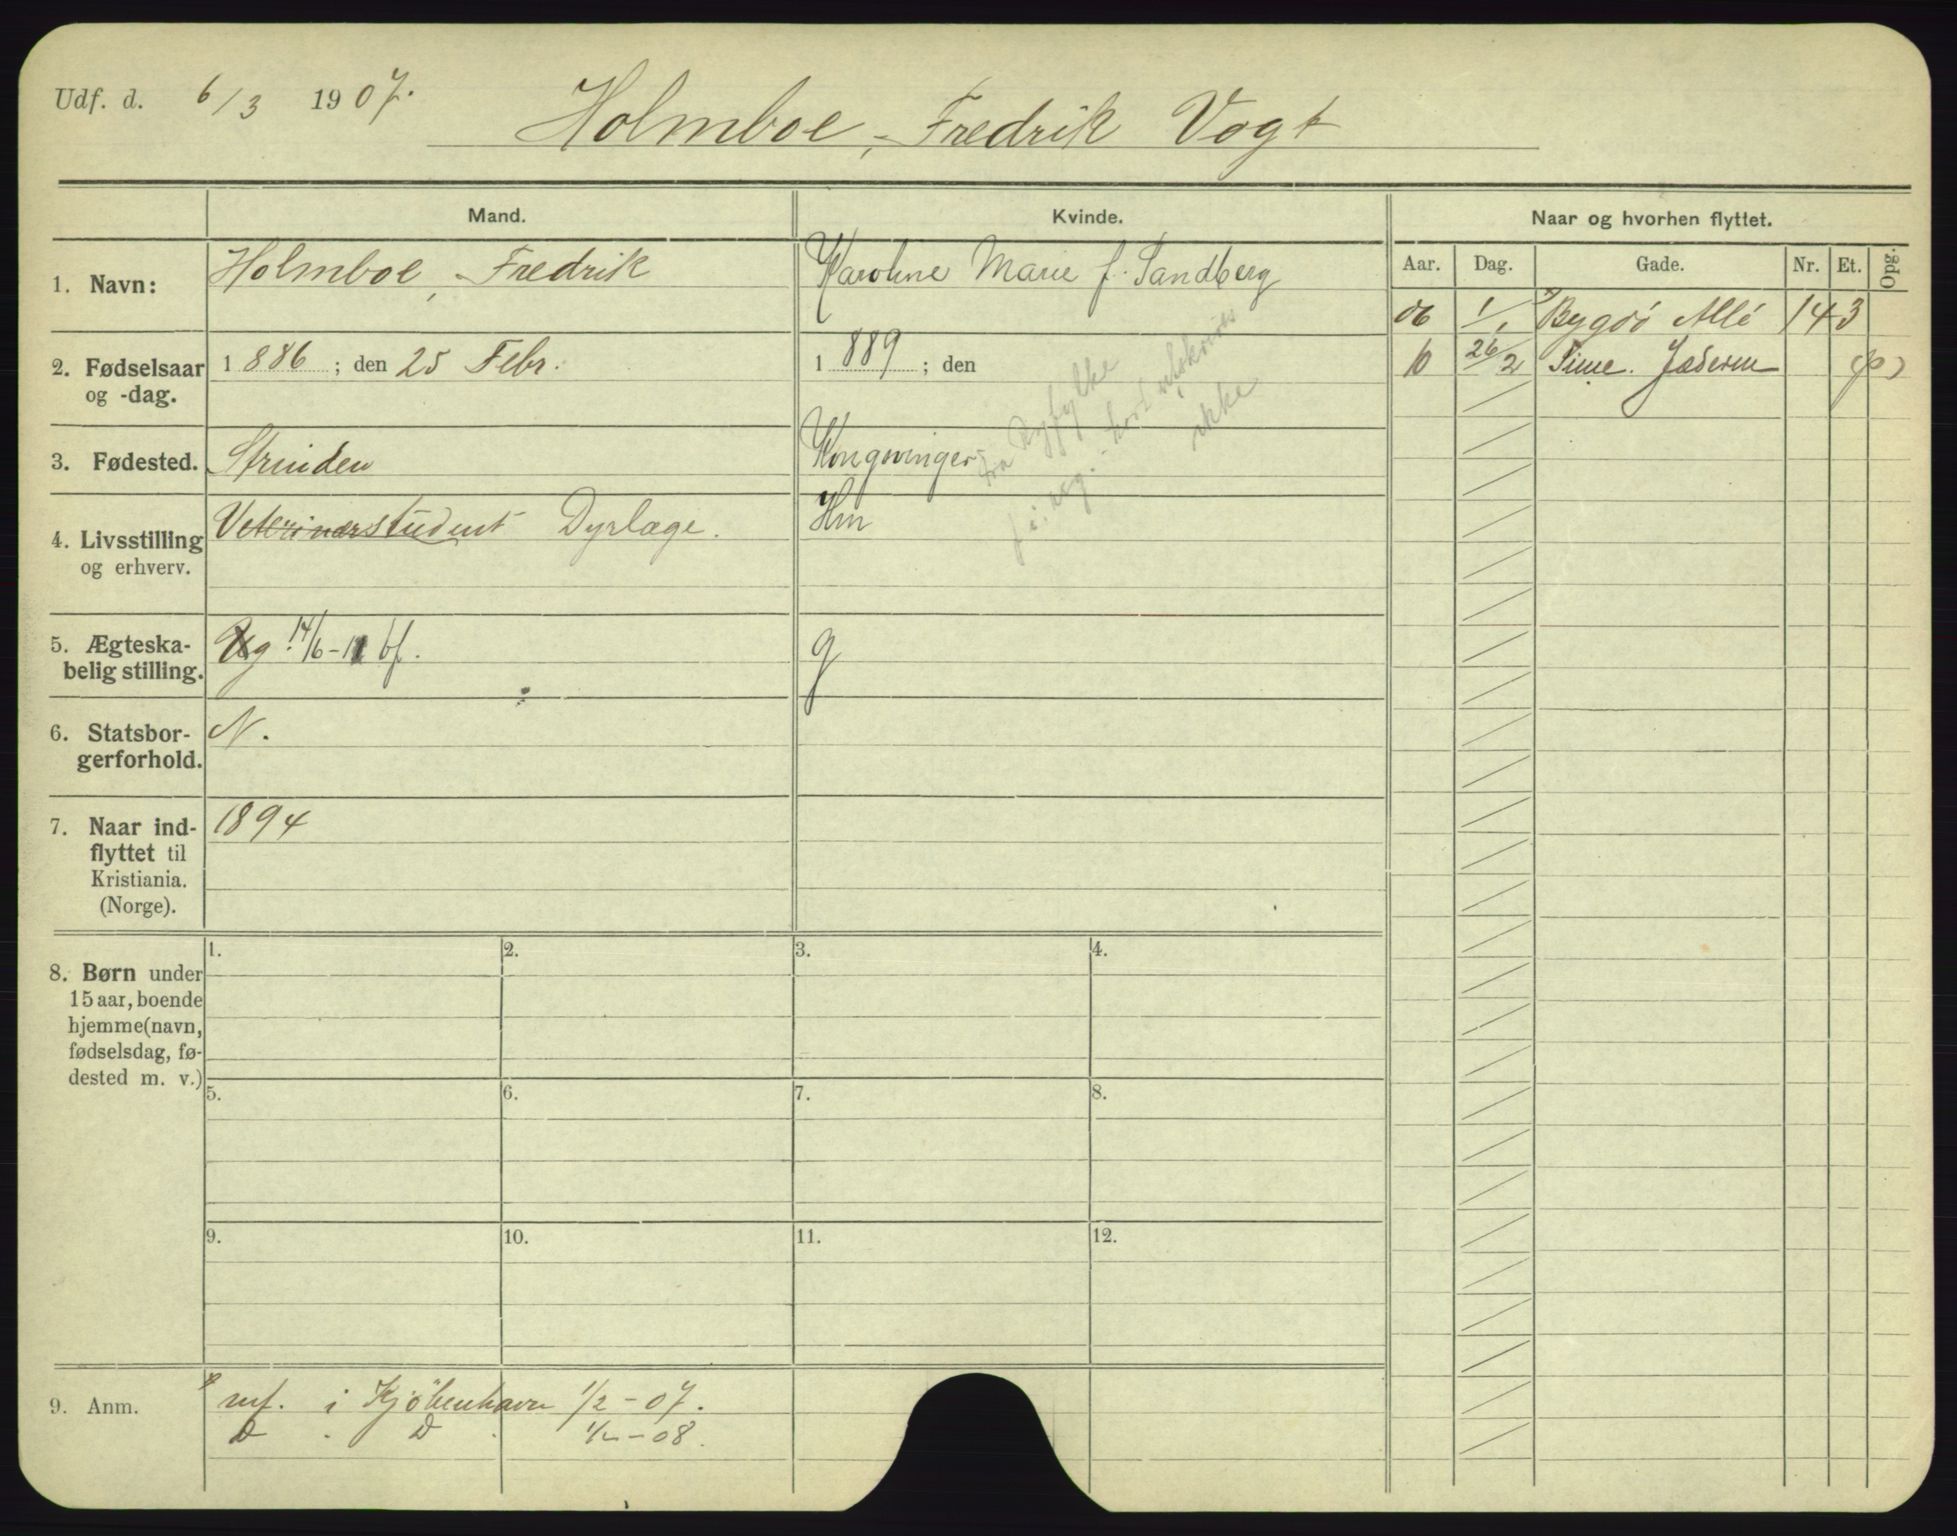 Udf. d. 6/3 1907.
Holmboe, Fredrik Vogt
Mand.
Kvinde.
Naar og hvorhen flyttet.
Aar. Dag. Gade. Nr. Et. Opg.
1. Navn:
Holmboe, Fredrik
Karoline Marie f. Sandberg
06 1/1 Bygdö Allé 14 3
10 26/2 Time. Jæderen
2. Fødselsaar
og -dag.
1886; den 25 Febr.
1889; den
3. Fødested.
Strinden
Kongsvinger
fra Ryfylke
ikke
4. Livsstilling
og erhverv.
Veterinærstudent Dyrlæge.
Hm
5. Ægteska-
belig stilling.
Ug 14/6-11 bf.
g
6. Statsbor-
gerforhold.
N.
7. Naar ind-
flyttet til
Kristiania.
(Norge).
1894
8. Børn under
15 aar, boende
hjemme (navn,
fødselsdag, fø-
dested m. v.)
1. 2. 3. 4.
5. 6. 7. 8.
9. 10. 11. 12.
9. Anm.
mf. i Kjöbenhavn 1/2-07.
D . D . 1/2-08.